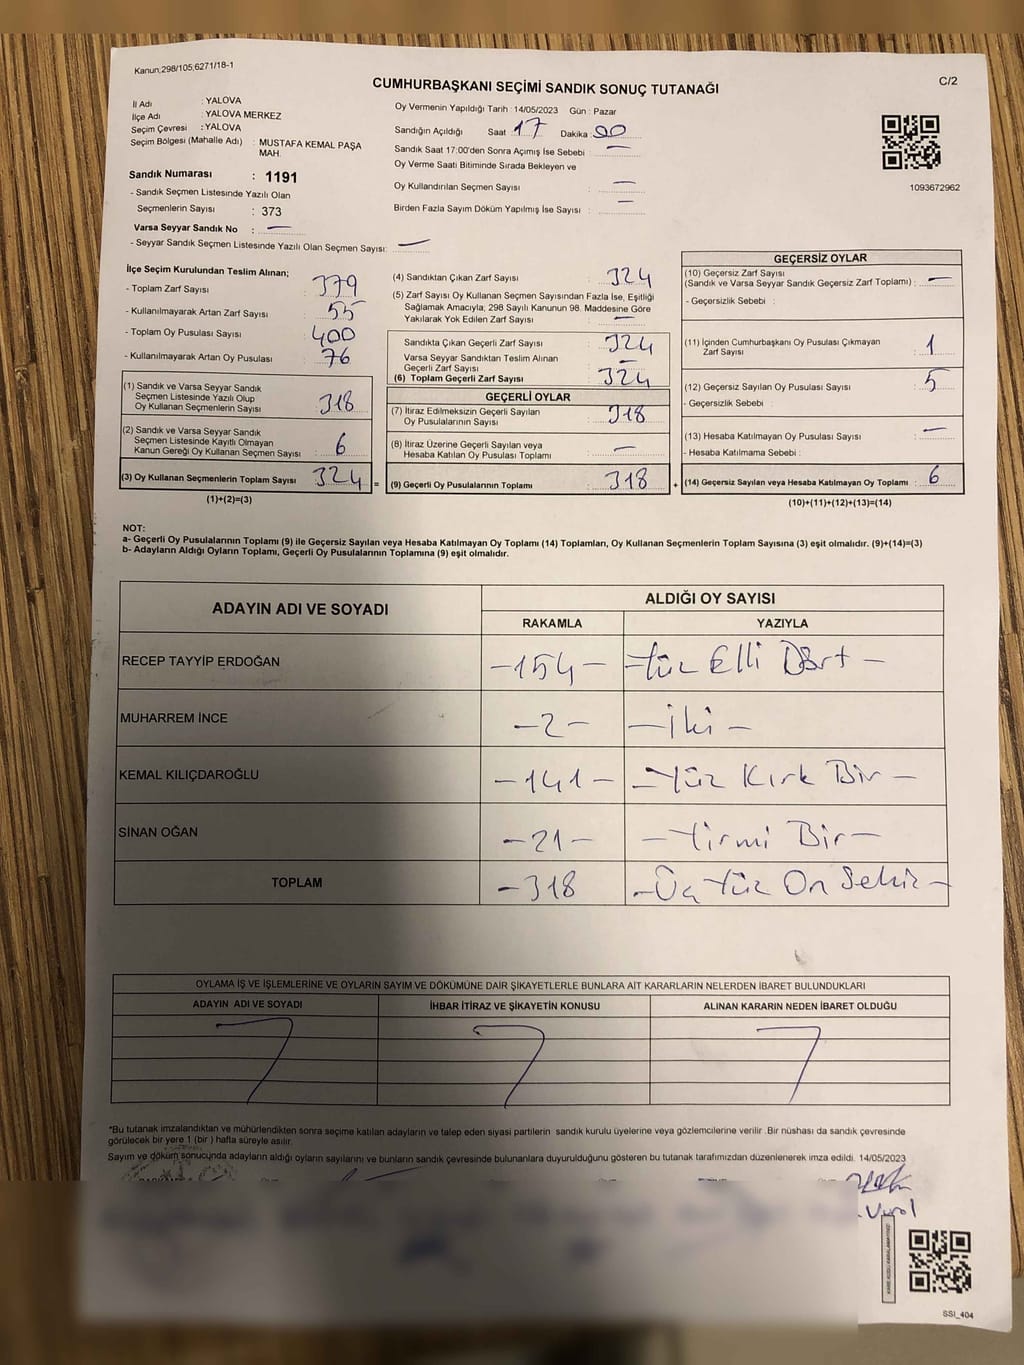 Kanun;298/105;6271/18-1
CUMHURBAŞKANI SEÇİMİ SANDIK SONUÇ TUTANAĞI
C/2
İl Adı : YALOVA
İlçe Adı : YALOVA MERKEZ
Seçim Çevresi : YALOVA
Seçim Bölgesi (Mahalle Adı) : MUSTAFA KEMAL PAŞA MAH.
Sandık Numarası : 1191
- Sandık Seçmen Listesinde Yazılı Olan
Seçmenlerin Sayısı : 373
Varsa Seyyar Sandık No : —
- Seyyar Sandık Seçmen Listesinde Yazılı Olan Seçmen Sayısı: —
Oy Vermenin Yapıldığı Tarih : 14/05/2023 Gün : Pazar
Sandığın Açıldığı Saat 17 Dakika : 00
Sandık Saat 17:00'den Sonra Açımış İse Sebebi : —
Oy Verme Saati Bitiminde Sırada Bekleyen ve
Oy Kullandırılan Seçmen Sayısı : —
Birden Fazla Sayım Döküm Yapılmış İse Sayısı : —
1093672962
İlçe Seçim Kurulundan Teslim Alınan;
- Toplam Zarf Sayısı : 379
- Kullanılmayarak Artan Zarf Sayısı : 55
- Toplam Oy Pusulası Sayısı : 400
- Kullanılmayarak Artan Oy Pusulası : 76
(1) Sandık ve Varsa Seyyar Sandık
Seçmen Listesinde Yazılı Olup
Oy Kullanan Seçmenlerin Sayısı : 318
(2) Sandık ve Varsa Seyyar Sandık
Seçmen Listesinde Kayıtlı Olmayan
Kanun Gereği Oy Kullanan Seçmen Sayısı : 6
(3) Oy Kullanan Seçmenlerin Toplam Sayısı : 324 =
(1)+(2)=(3)
(4) Sandıktan Çıkan Zarf Sayısı : 324
(5) Zarf Sayısı Oy Kullanan Seçmen Sayısından Fazla İse, Eşitliği
Sağlamak Amacıyla; 298 Sayılı Kanunun 98. Maddesine Göre
Yakılarak Yok Edilen Zarf Sayısı : —
Sandıkta Çıkan Geçerli Zarf Sayısı : 324
Varsa Seyyar Sandıktan Teslim Alınan
Geçerli Zarf Sayısı : —
(6) Toplam Geçerli Zarf Sayısı : 324
GEÇERLİ OYLAR
(7) İtiraz Edilmeksizin Geçerli Sayılan
Oy Pusulalarının Sayısı : 318
(8) İtiraz Üzerine Geçerli Sayılan veya
Hesaba Katılan Oy Pusulası Toplamı : —
(9) Geçerli Oy Pusulalarının Toplamı : 318 +
GEÇERSİZ OYLAR
(10) Geçersiz Zarf Sayısı
(Sandık ve Varsa Seyyar Sandık Geçersiz Zarf Toplamı) : —
- Geçersizlik Sebebi :
(11) İçinden Cumhurbaşkanı Oy Pusulası Çıkmayan
Zarf Sayısı : 1
(12) Geçersiz Sayılan Oy Pusulası Sayısı : 5
- Geçersizlik Sebebi :
(13) Hesaba Katılmayan Oy Pusulası Sayısı : —
- Hesaba Katılmama Sebebi :
(14) Geçersiz Sayılan veya Hesaba Katılmayan Oy Toplamı : 6
(10)+(11)+(12)+(13)=(14)
NOT:
a- Geçerli Oy Pusulalarının Toplamı (9) ile Geçersiz Sayılan veya Hesaba Katılmayan Oy Toplamı (14) Toplamları, Oy Kullanan Seçmenlerin Toplam Sayısına (3) eşit olmalıdır. (9)+(14)=(3)
b- Adayların Aldığı Oyların Toplamı, Geçerli Oy Pusulalarının Toplamına (9) eşit olmalıdır.
ADAYIN ADI VE SOYADI
ALDIĞI OY SAYISI
RAKAMLA YAZIYLA
RECEP TAYYİP ERDOĞAN -154- -Yüz Elli Dört-
MUHARREM İNCE -2- -İki-
KEMAL KILIÇDAROĞLU -141- -Yüz Kırk Bir-
SİNAN OĞAN -21- -Yirmi Bir-
TOPLAM -318 -Üç Yüz On Sekiz-
OYLAMA İŞ VE İŞLEMLERİNE VE OYLARIN SAYIM VE DÖKÜMÜNE DAİR ŞİKAYETLERLE BUNLARA AİT KARARLARIN NELERDEN İBARET BULUNDUKLARI
ADAYIN ADI VE SOYADI İHBAR İTİRAZ VE ŞİKAYETİN KONUSU ALINAN KARARIN NEDEN İBARET OLDUĞU
*Bu tutanak imzalandıktan ve mühürlendikten sonra seçime katılan adayların ve talep eden siyasi partilerin sandık kurulu üyelerine veya gözlemcilerine verilir .Bir nüshası da sandık çevresinde
görülecek bir yere 1 (bir ) hafta süreyle asılır.
Sayım ve döküm sonucunda adayların aldığı oyların sayılarını ve bunların sandık çevresinde bulunanlara duyurulduğunu gösteren bu tutanak tarafımızdan düzenlenerek imza edildi. 14/05/2023
SSI_404